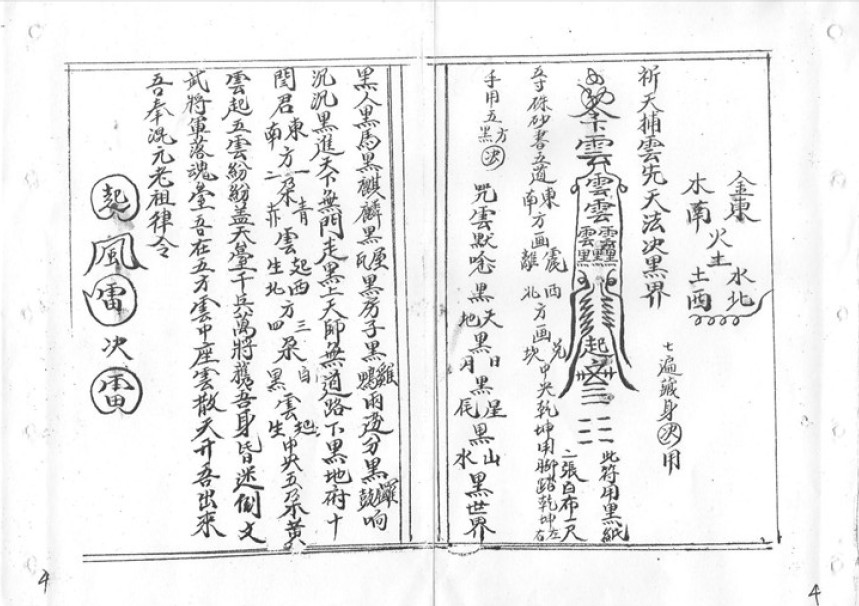 祈天捕雲先天法决黑界
金東
木南
火土
水北
土西
七遍藏身决用
雲
雲雲
起
此符用黑紙
二張白布一尺
五寸硃砂書五道東方画震西兑
南方画離北方画坎中央乾坤用腳踏乾坤左右
手用五方黑决
咒雲默唸黑天黑地黑日月黑星辰黑山水黑世界
黑人黑馬黑麒麟黑屋黑瓦黑房子黑雞鴨兩邊分黑鑼鼓响
沉沉黑進天下無門走黑上天師無道路下黑地府十
閻君東方一朵青雲起西方三朵白雲起中央五朵黄
南二赤生北四黑生
雲起五雲紛紛蓋天臺千兵萬將護吾身皆迷倒文
武將軍落魂臺吾在五方雲中座雲散天开吾出來
吾奉混元老祖律令
風雷决雷
4
4